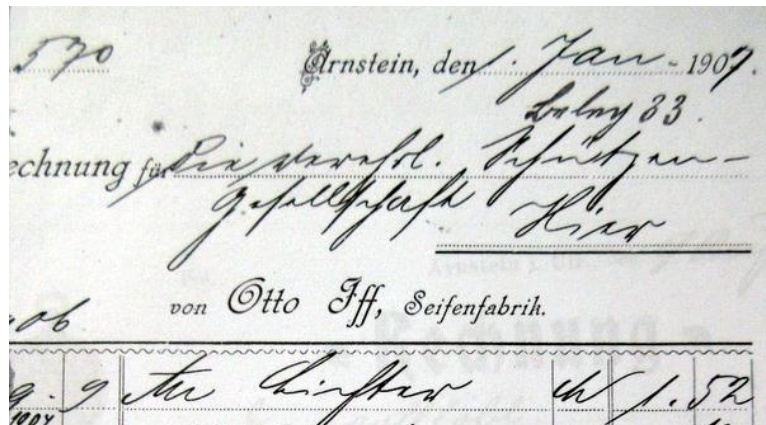 570 Arnstein, den 1. Jan. 1907.
Beleg 33.
echnung für die verehrl. Schützen-
gesellschaft Hier
von Otto Iff, Seifenfabrik.
9 An Lichter M 1.52